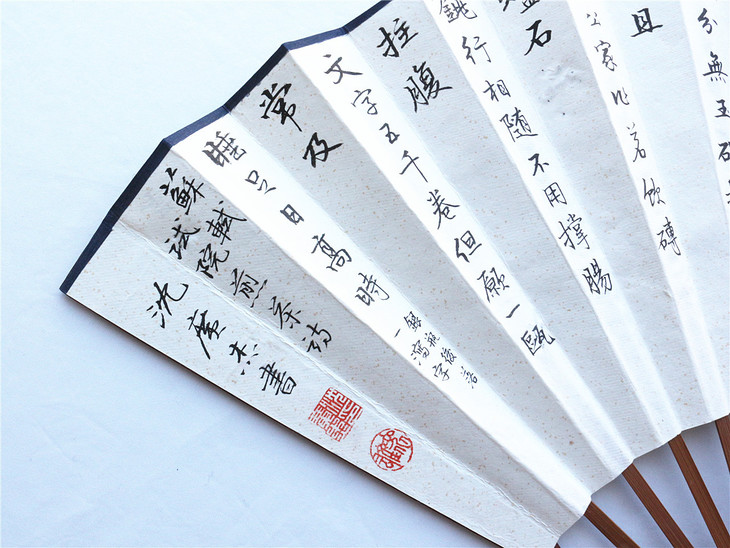 分無玉碗
且
公家作茗飲磚
石
銚行相隨不用撐腸
拄腹
文字五千卷但願一甌
常及
睡足日高時
銀瓶後落
一瀉字
蘇軾試院煎茶詩
沈摩杰書